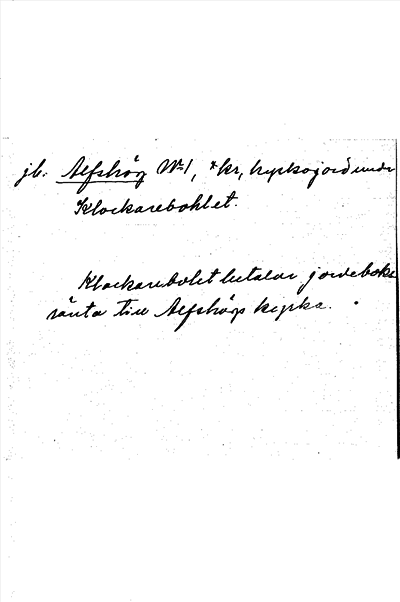 jb. Alfshög No 1, *kr, kyrkojord under
Klockarebohlet.
Klockarebolet betalar jordeboks
ränta till Alfshögs kyrka.